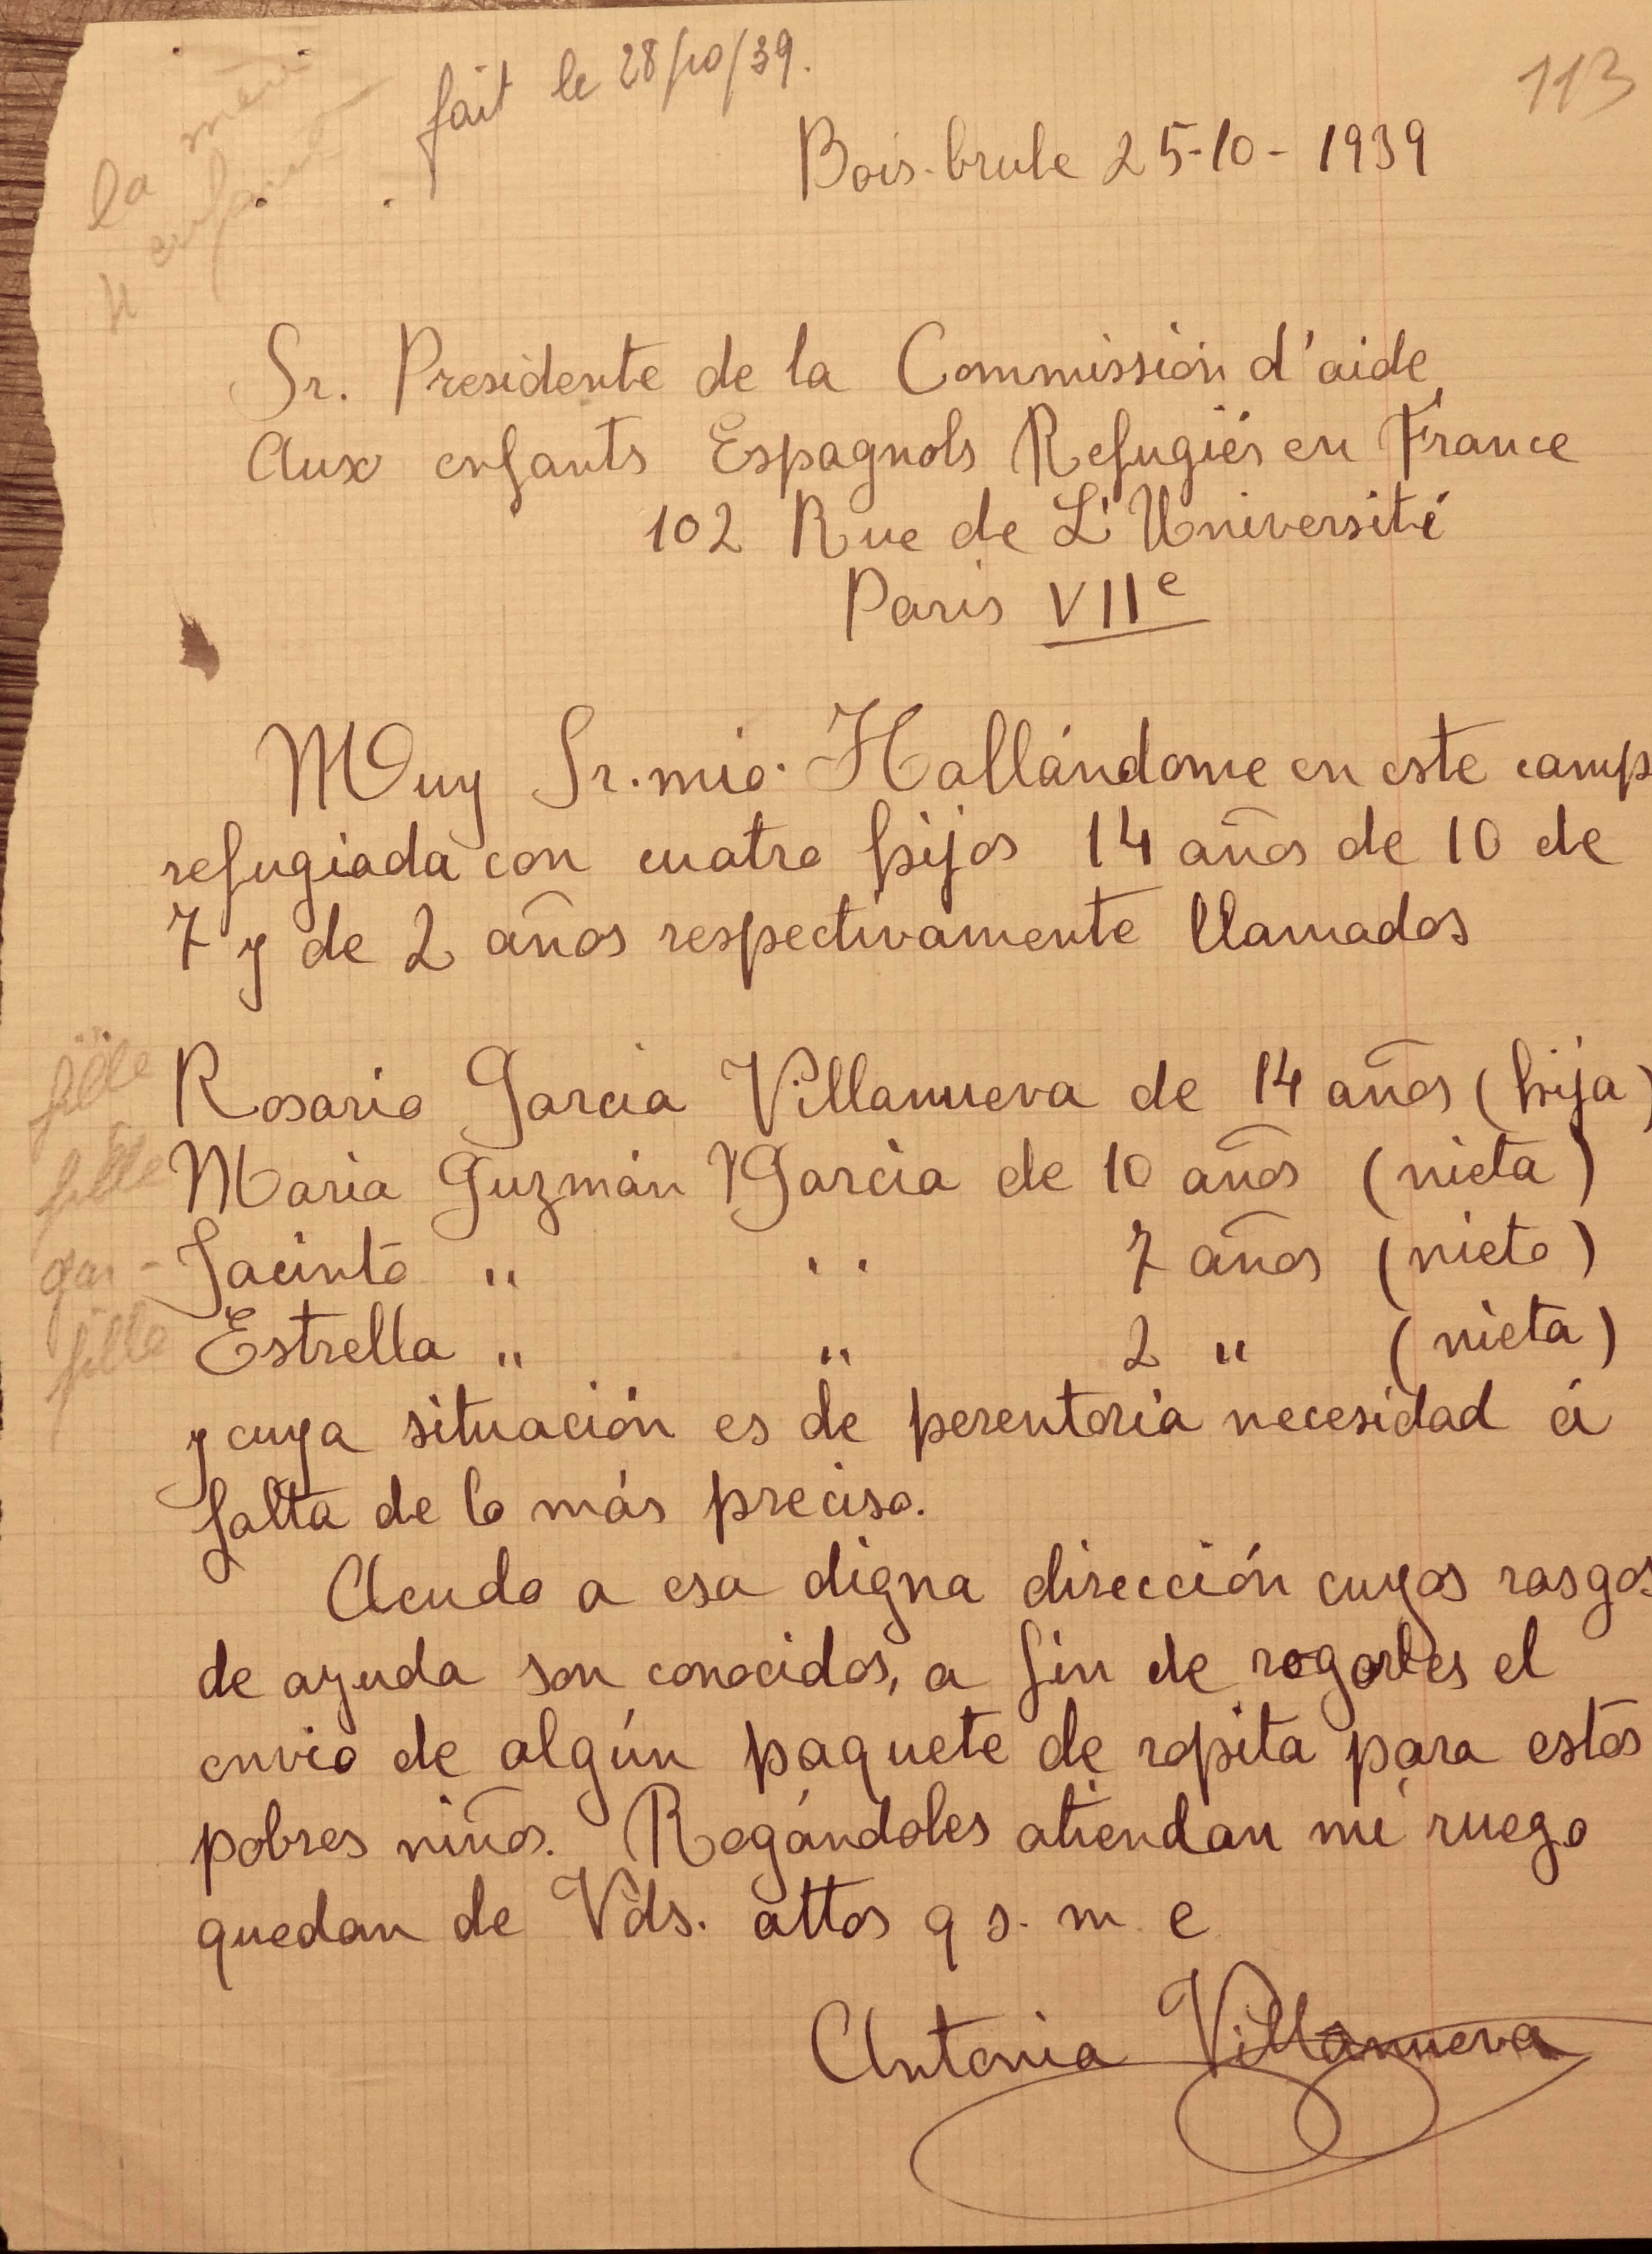 la mère
4 enfants
fait le 28/10/39.
113
Bois-brule 25-10-1939
Sr. Presidente de la Commissión d'aide
Aux enfants Espagnols Refugiés en France
102 Rue de L'Université
Paris VIIe
Muy Sr. mio: Hallándome en este camp
refugiada con cuatro hijos 14 años de 10 de
7 y de 2 años respectivamente llamados
fille Rosario Garcia Villanueva de 14 años (hija)
fille Maria Guzmán Garcia de 10 años (nieta)
gar- Jacinto " " 7 años (nieto)
fille Estrella " " 2 " (nieta)
y cuya situación es de perentoria necesidad á
falta de lo más preciso.
Acudo a esa digna dirección cuyos rasgos
de ayuda son conocidos, a fin de rogarles el
envio de algún paquete de ropita para estos
pobres niños. Rogándoles atiendan mi ruego
quedan de Vds. attos q s. m. e
Antonia Villanueva